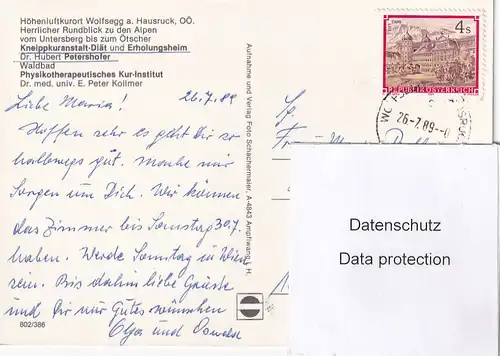 Höhenluftkurort Wolfsegg a. Hausruck, OÖ.
Herrlicher Rundblick zu den Alpen
vom Untersberg bis zum Ötscher
Kneippkuranstalt-Diät und Erholungsheim
Dr. Hubert Petershofer
Waldbad
Physikotherapeutisches Kur-Institut
Dr. med. univ. E. Peter Kollmer
26.7.89
Liebe Maria!
Hoffen sehr es geht Dir so
halbwegs gut. Mache mir
Sorgen um Dich. Wir können
das Zimmer bis Samstag 30.7.
haben. Werde Samstag in Wien
sein. Bis dahin liebe Grüsse
und Dir nur Gutes wünschen
Olga und Oswald
802/386
Aufnahme und Verlag Foto Schachermaier, A-4843 Ampflwang i. H.
4s
STIFT STAMS
REPUBLIK ÖSTERREICH
26-7.89-
Datenschutz
Data protection